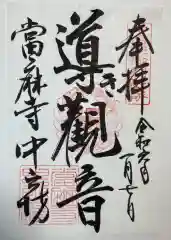 奉拝
令和六年
一月七日
導き觀音
當麻寺中之坊